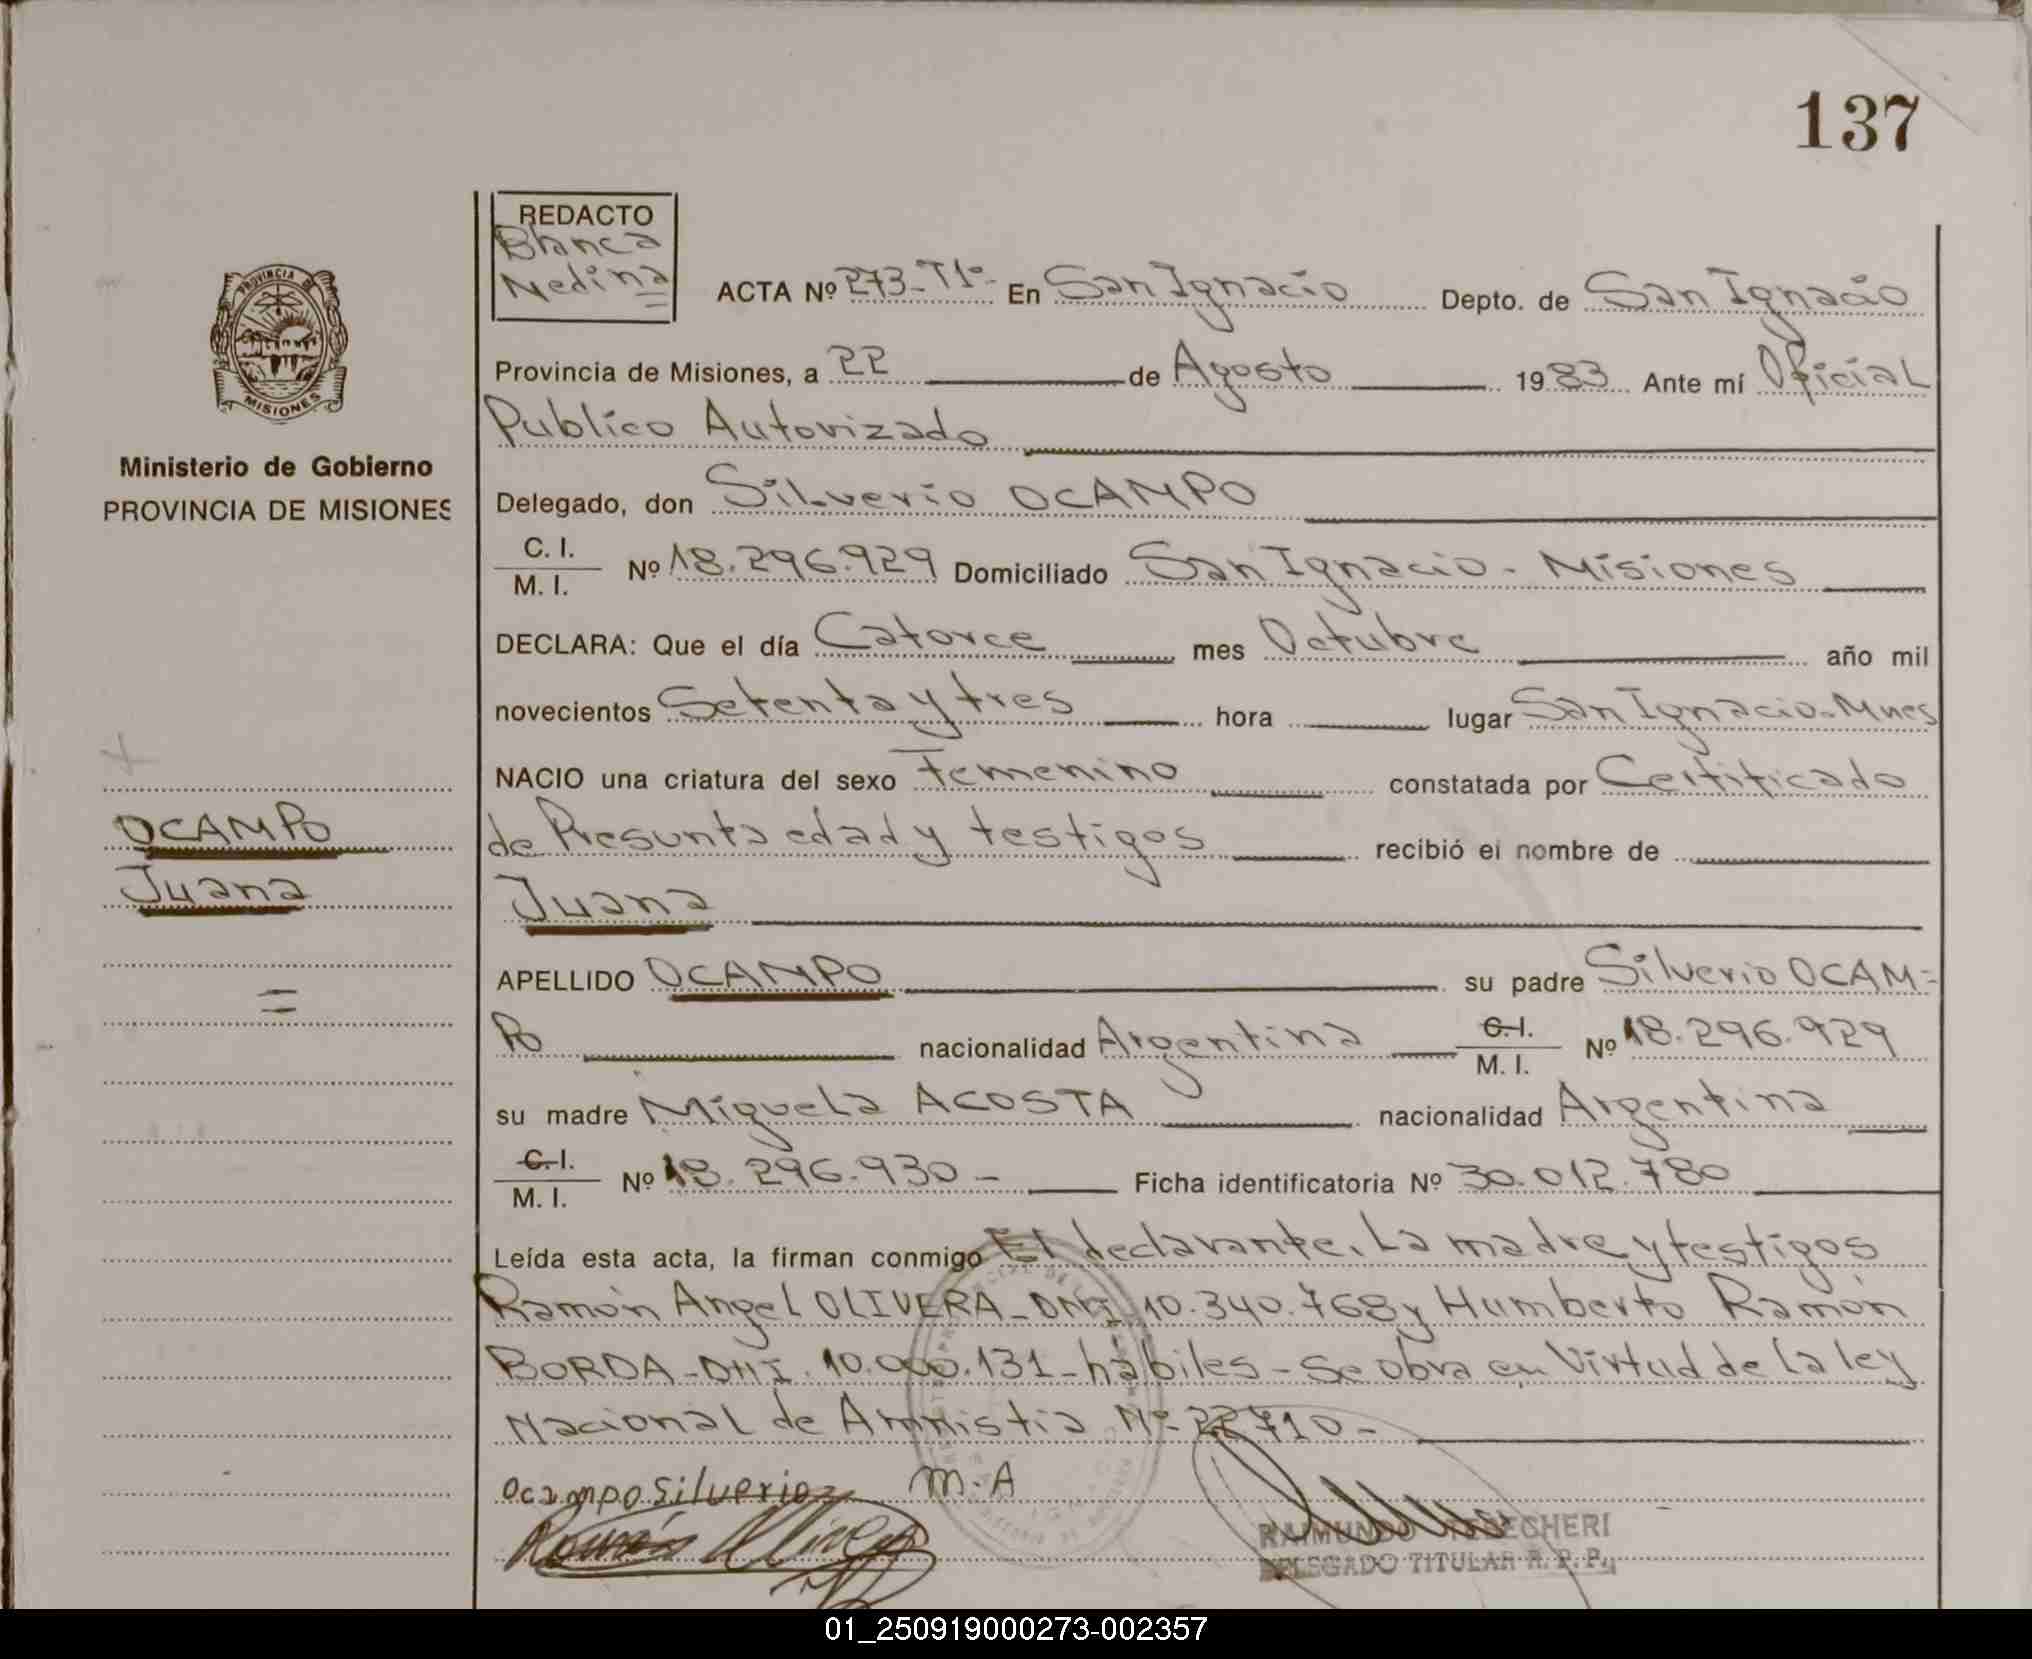 137
REDACTO
Blanca
Medina
PROVINCIA DE
MISIONES
Ministerio de Gobierno
PROVINCIA DE MISIONES
ACTA Nº 273-T1º- En San Ignacio Depto. de San Ignacio
Provincia de Misiones, a 22 de Agosto 1983 Ante mí Oficial
Publico Autorizado
Delegado, don Silverio OCAMPO
C. I.
M. I. Nº 18.296.929 Domiciliado San Ignacio - Misiones
DECLARA: Que el día Catorce mes Octubre año mil
novecientos Setenta y tres hora lugar San Ignacio-Mnes
NACIO una criatura del sexo Femenino constatada por Certificado
de Presunta edad y testigos recibió el nombre de
OCAMPO
Juana
=
Juana
APELLIDO OCAMPO su padre Silverio OCAM=
Po nacionalidad Argentina C. I.
M. I. Nº 18.296.929
su madre Miguela ACOSTA nacionalidad Argentina
C. I.
M. I. Nº 18.296.930 - Ficha identificatoria Nº 30.012.780
Leída esta acta, la firman conmigo El declarante, La madre y testigos
Ramón Angel OLIVERA-DNI 10.340.768 y Humberto Ramón
BORDA-DNI. 10.000.131-hábiles-Se obra en Virtud de la ley
Nacional de Amnistia Nº-22710-
Ocampo Silverio M.A
Ramón Olivera
RAIMUNDO
DELEGADO TITULAR R. P. P.
01_250919000273-002357